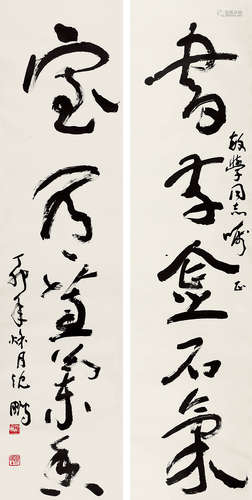 書存金石氣
學同志囑正
室有蕙蘭香
丁卯年秋月沈鵬